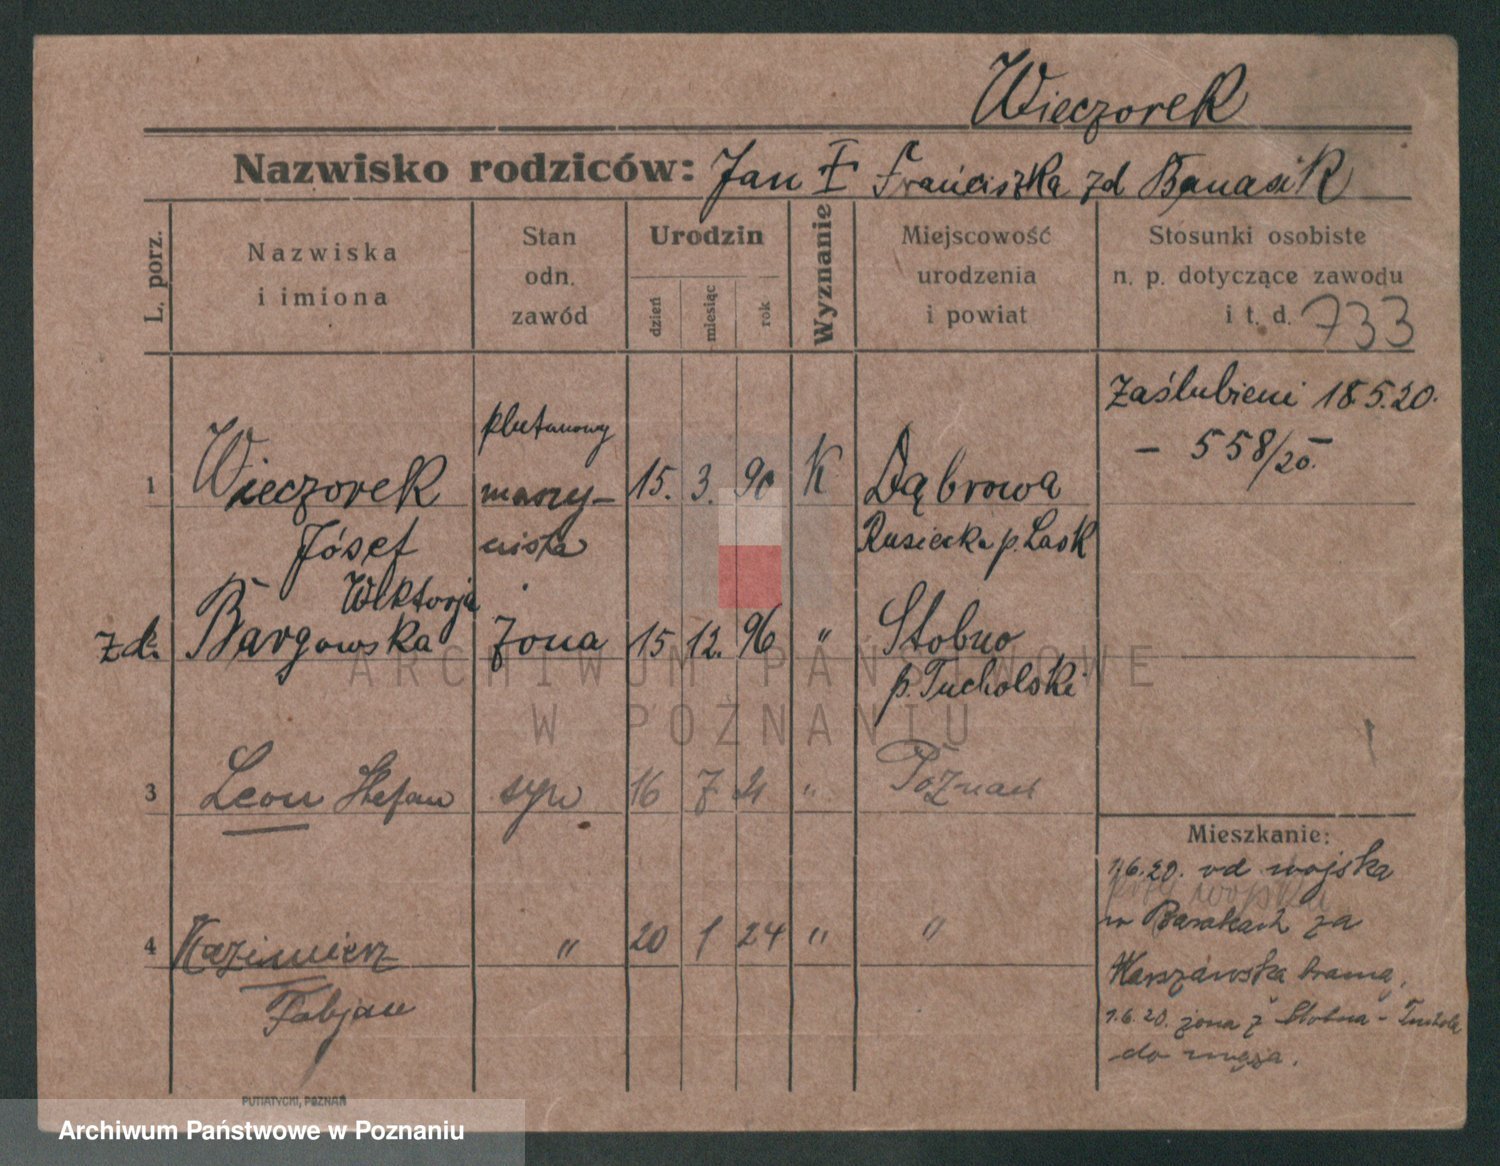 Wieczorek
Nazwisko rodziców: Jan I Franciszka zd Banasik
L. porz.
Nazwiska
i imiona
Stan
odn.
zawód
Urodzin
dzień
miesiąc
rok
Wyznanie
Miejscowość
urodzenia
i powiat
Stosunki osobiste
n. p. dotyczące zawodu
i t. d. 733
Zaślubieni 18.5.20.
– 558/20.
plutonowy
1 Wieczorek maszy- 15. 3. 90 K Dąbrowa
Józef nista Rusiecka p. Łask
Wiktorja
zd. Bargowska żona 15 12. 96 " Stobno
p. Tucholski
3 Leon Stefan syn 16 7 21 " Poznań
4 Kazimierz " 20 1 24 " "
Fabjan
Mieszkanie:
1.6.20. od wojska
przy wojsku
w Barakach za
Warszawska bramą,
1.6.20. żona z Stobna - Tuchola
do męża.
PUTIATYCKI, POZNAŃ
ARCHIWUM PAŃSTWOWE
W POZNANIU
Archiwum Państwowe w Poznaniu